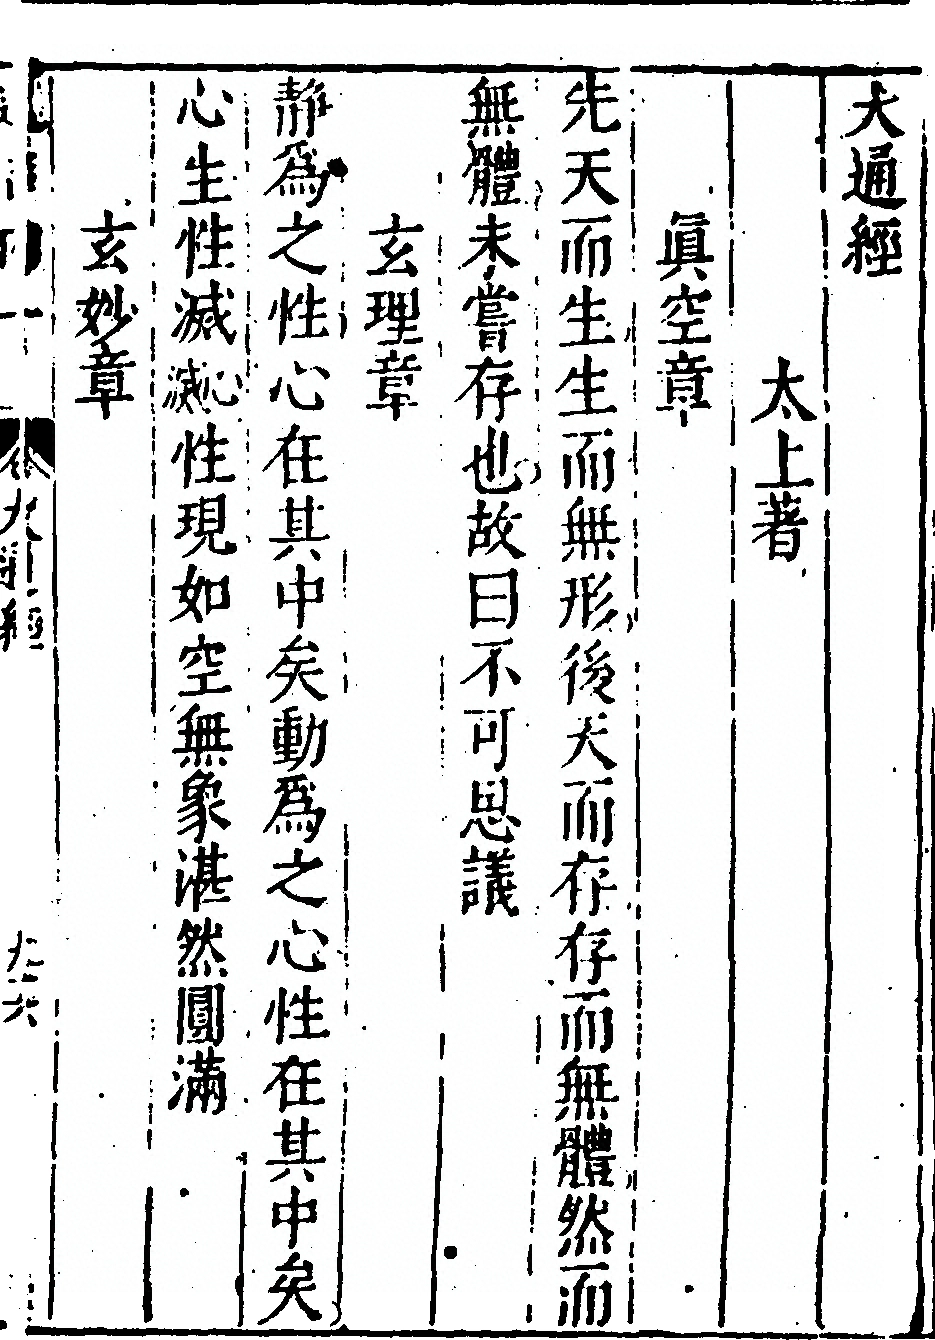 大通經
太上著
眞空章
先天而生生而無形後天而存存而無體然而
無體未嘗存也故曰不可思議
玄理章
靜爲之性心在其中矣動爲之心性在其中矣
心生性滅心滅性現如空無象湛然圓滿
玄妙章